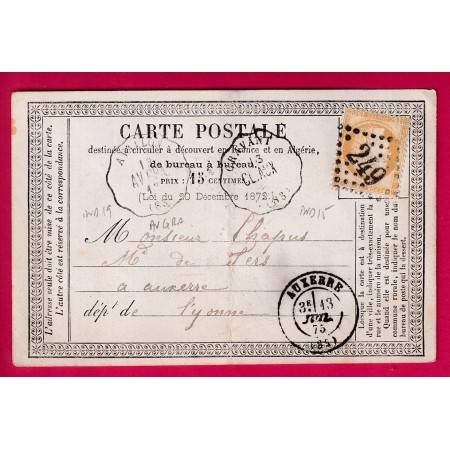 CARTE POSTALE
destinée à circuler à découvert en France et en Algérie,
de bureau à bureau.
PRIX : 15 CENTIMES
(Loi du 20 Décembre 1872.)
CRAVANT
CLAM
249
IND 15
Monsieur Chapus
Md de Fers
a auxerre
dépt de l'yonne
AUXERRE
13
JUIL
75
L'adresse seule doit être mise de ce côté de la carte.
L'autre côté est réservé à la correspondance.
Lorsque la carte est à destination
d'une ville, indiquer très-exactement la
rue et le numéro de la maison.
Quand elle est destinée pour une
commune rurale, indiquer le nom du
bureau de poste qui la dessert.